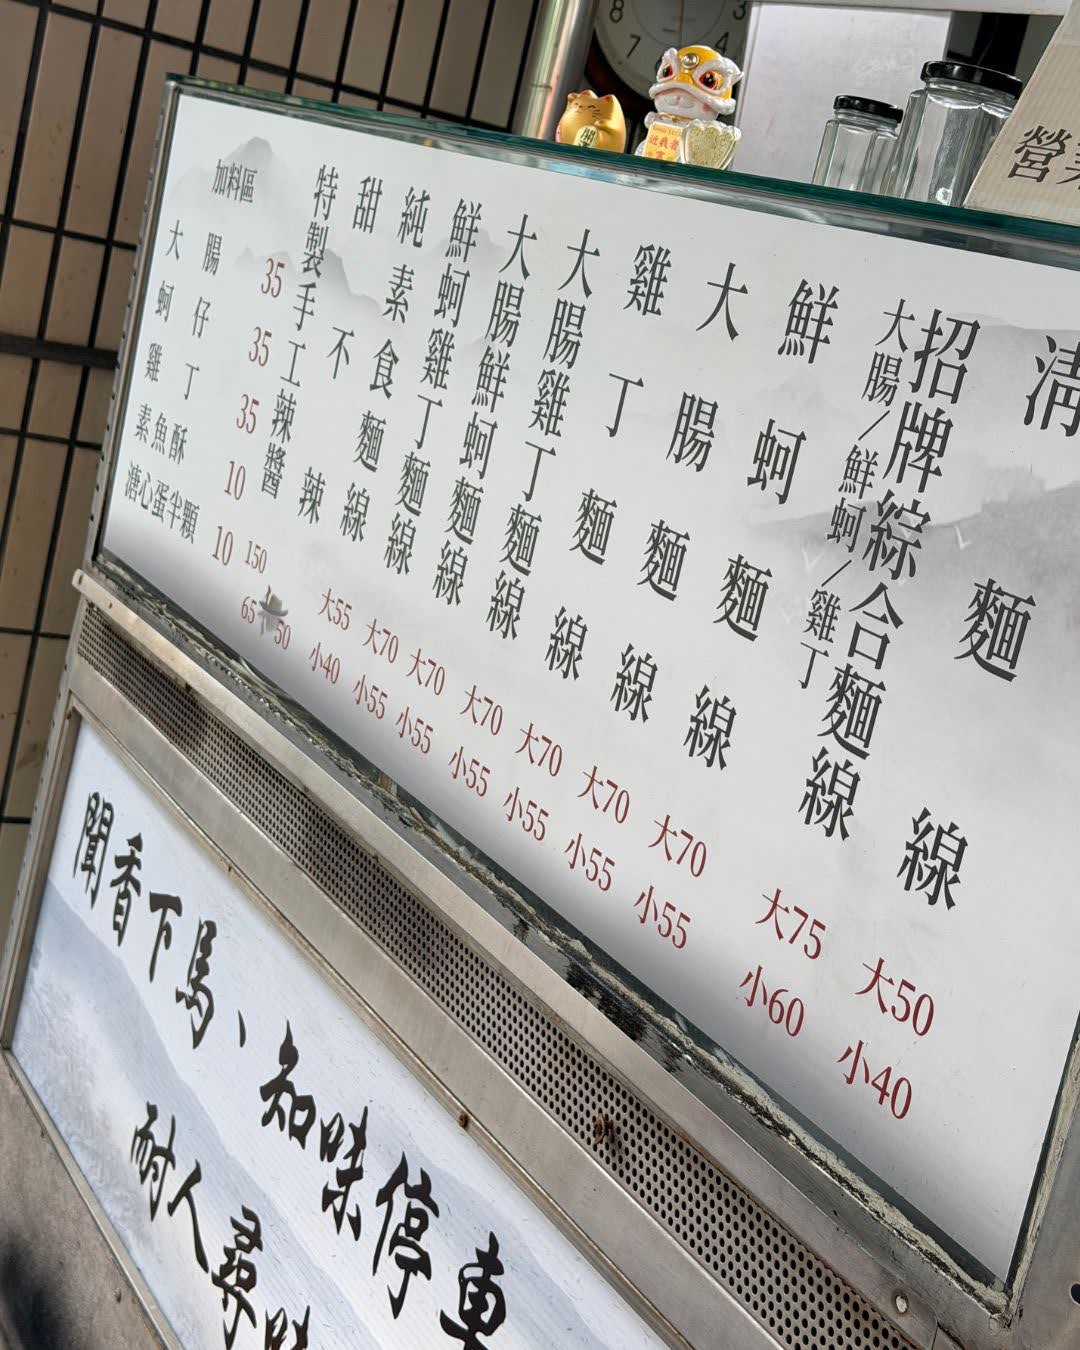 8
7
3
近我者
富
營
清麵線
大50
小40
招牌綜合麵線
大腸/鮮蚵/雞丁
大75
小60
鮮蚵麵線
大70
小55
大腸麵線
大70
小55
雞丁麵線
大70
小55
大腸雞丁麵線
大70
小55
大腸鮮蚵麵線
大70
小55
鮮蚵雞丁麵線
大70
小55
純素食麵線
大55
小40
甜不辣
50
特製手工辣醬
150
65
加料區
大腸 35
蚵仔 35
雞丁 35
素魚酥 10
溏心蛋半顆 10
聞香下馬、知味停車
耐人尋味